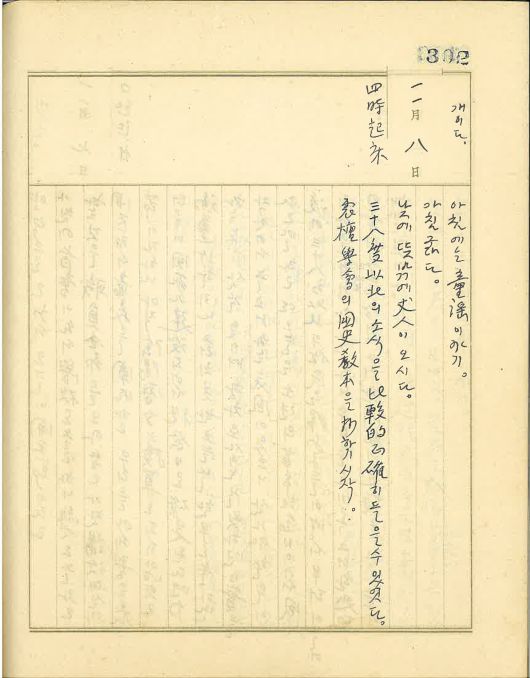 302
개이다.
一一月 八 日
四時起床
아침에는 童謠이야기。
아침 굶다。
낮에 뜻밖에 丈人이 오시다。
三十八度以北의 소식을 比較的 正確히 들을수있엇다。
震檀學會의 國史敎本을 하기시작。